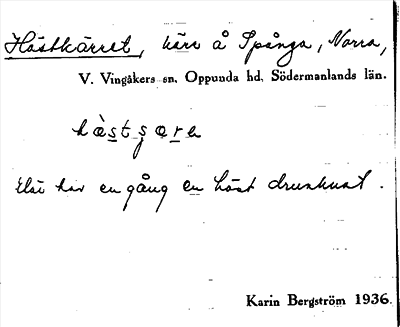 Hästkärret, kärr å Spånga, Norra,
V. Vingåkers sn, Oppunda hd, Södermanlands län.
Där har en gång en häst drunknat.
Karin Bergström 1936.